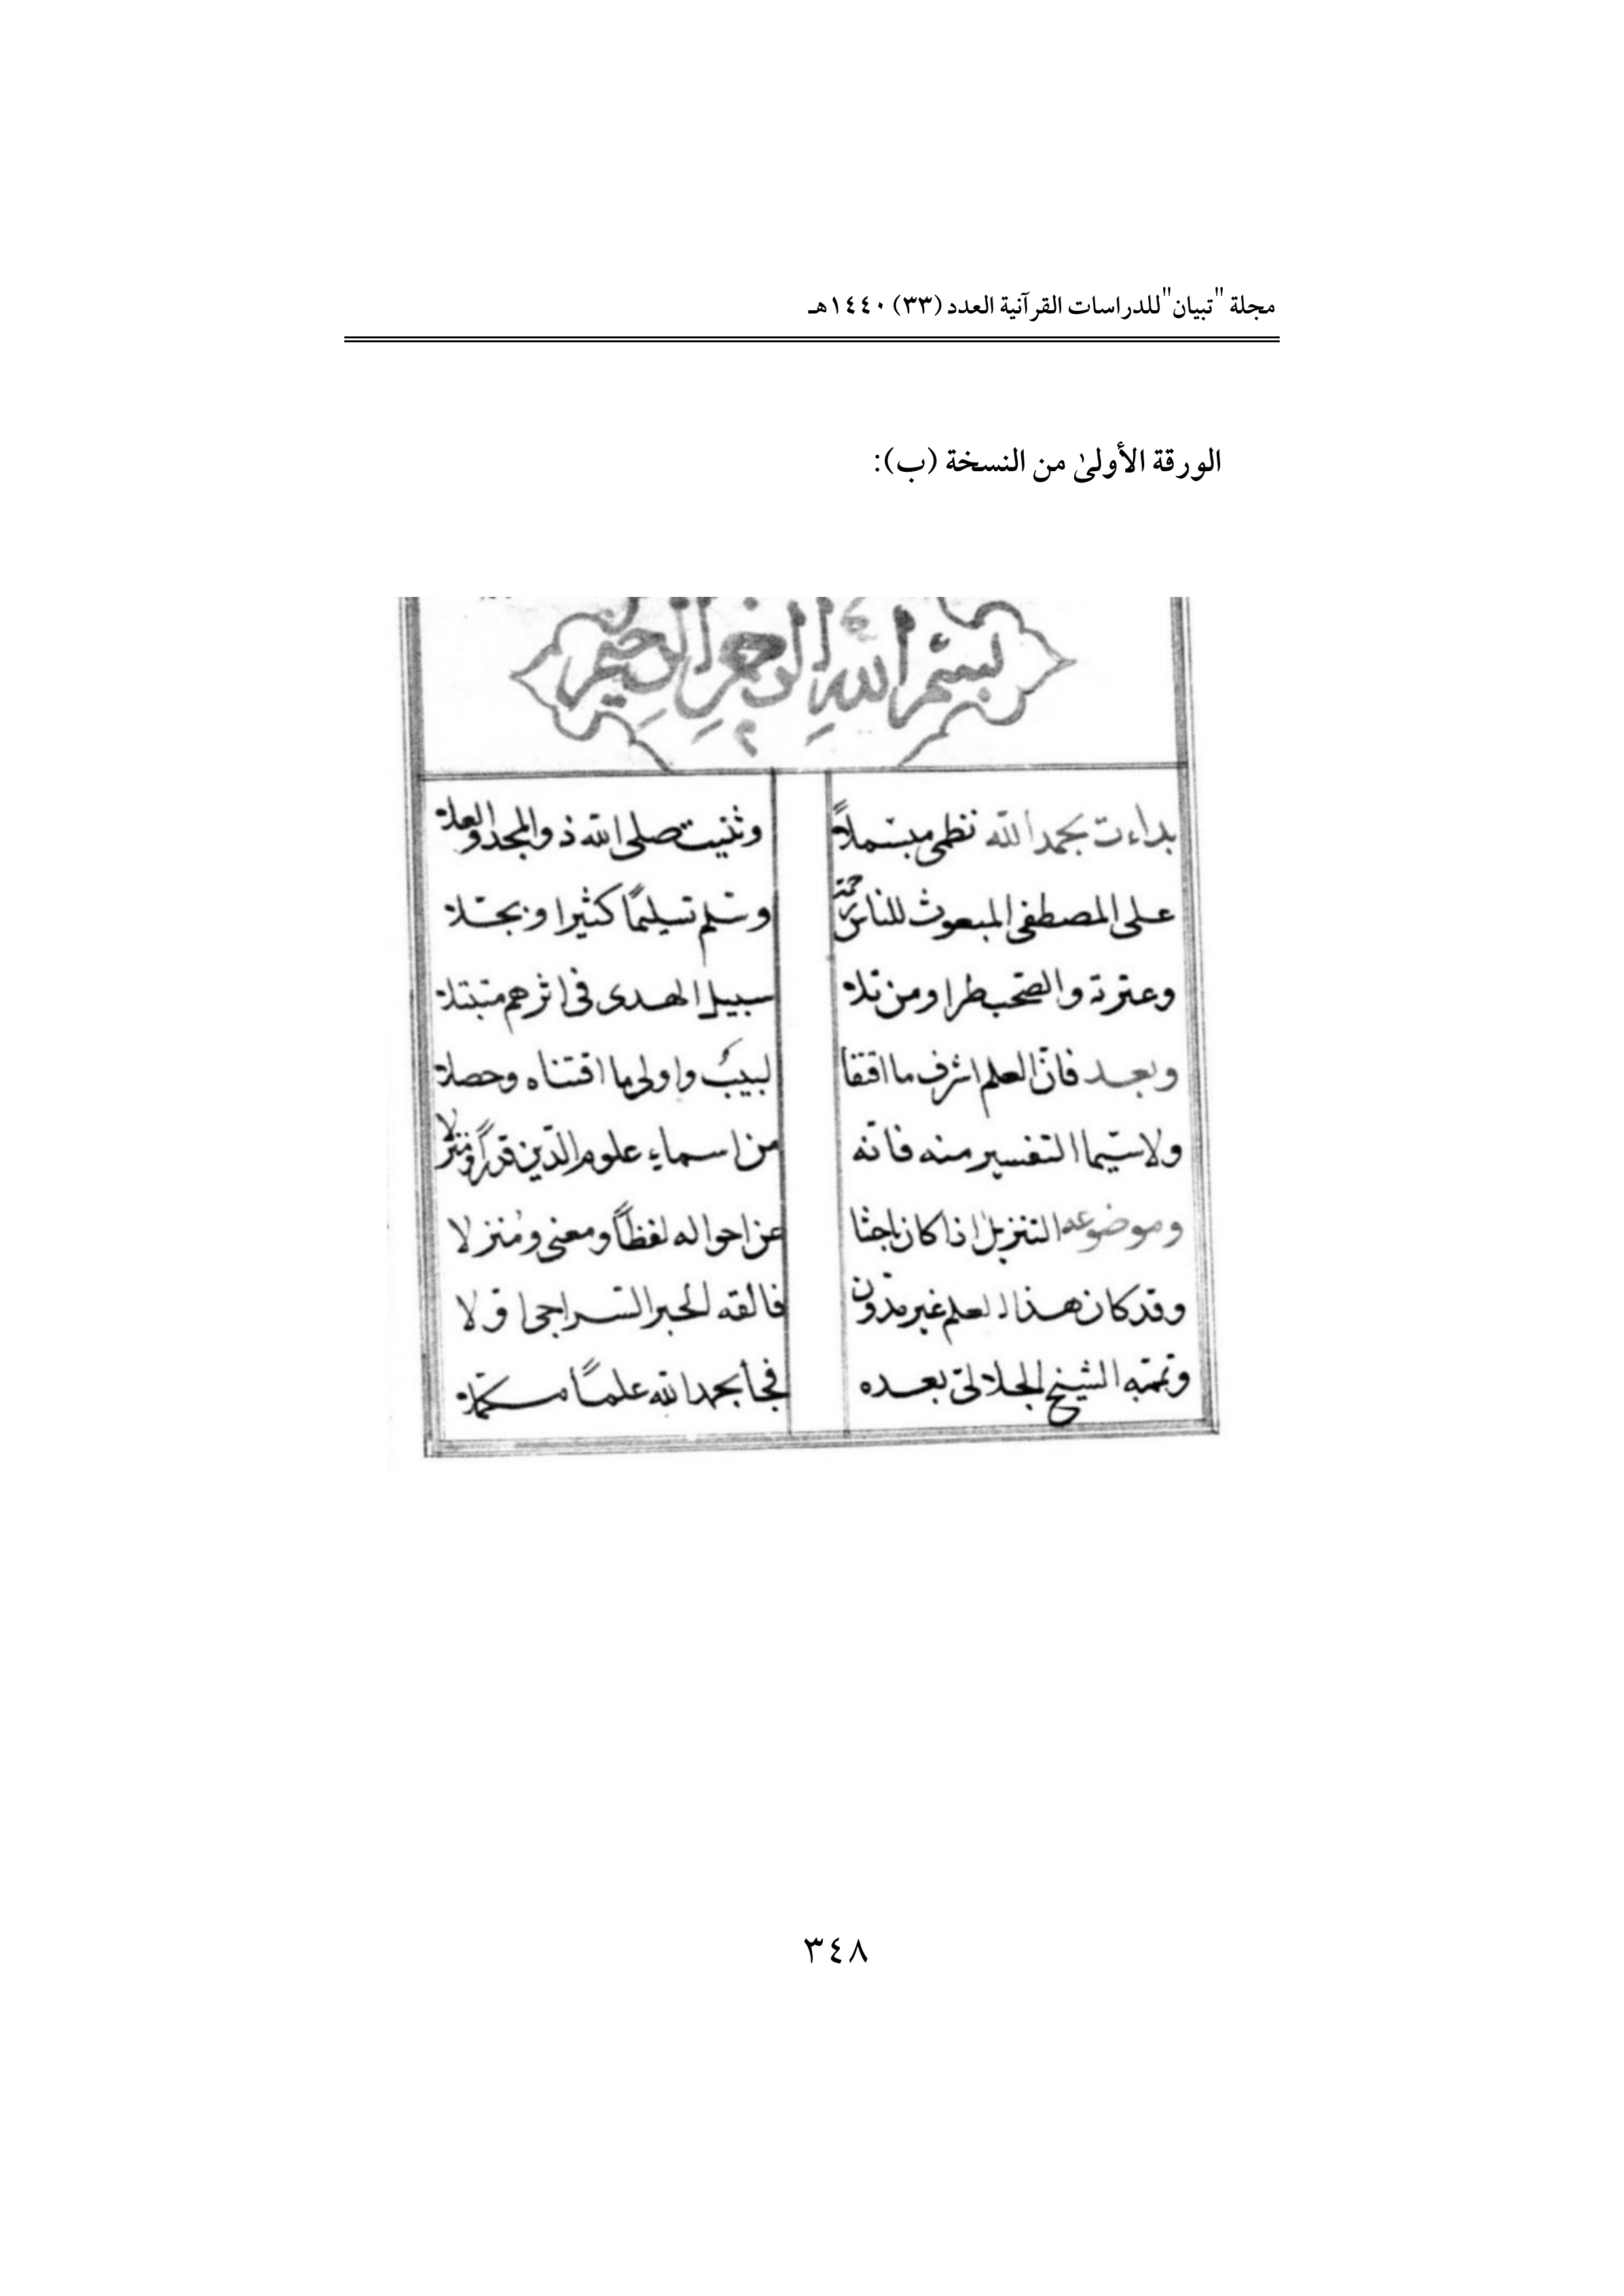 مجلة "تبيان" للدراسات القرآنية العدد (٣٣) ١٤٤٠هـ
الورقة الأولىٰ من النسخة (ب):
بسم الله الرحمن الرحيم
بداءت بحمد الله نظمى مبسملاً وثنيت صلى الله ذو المجد والعلا
على المصطفى المبعوث للناس رحمة وسلم تسليمًا كثيرا وبجّلا
وعترة والصّحب طرا ومن تلا سبيل الهدى فى اثرهم متبتلا
وبعد فانّ العلم اشرف ما اقتفا لبيبٌ واولى ما اقتناه وحصلا
ولا سيّما التفسير منه فانّه من اسماء علوم الدّين قدراً ومنزلا
وموضوعه التنزيل اذا كان باحثا عن احواله لفظاً ومعنى ومُنزلا
وقد كان هذا العلم غير مدّون فالفه الحبر السراجى اوّلا
وتممّه الشيخ الجلالىّ بعده فجأ بحمد الله علمًا مكمّلا
٣٤٨